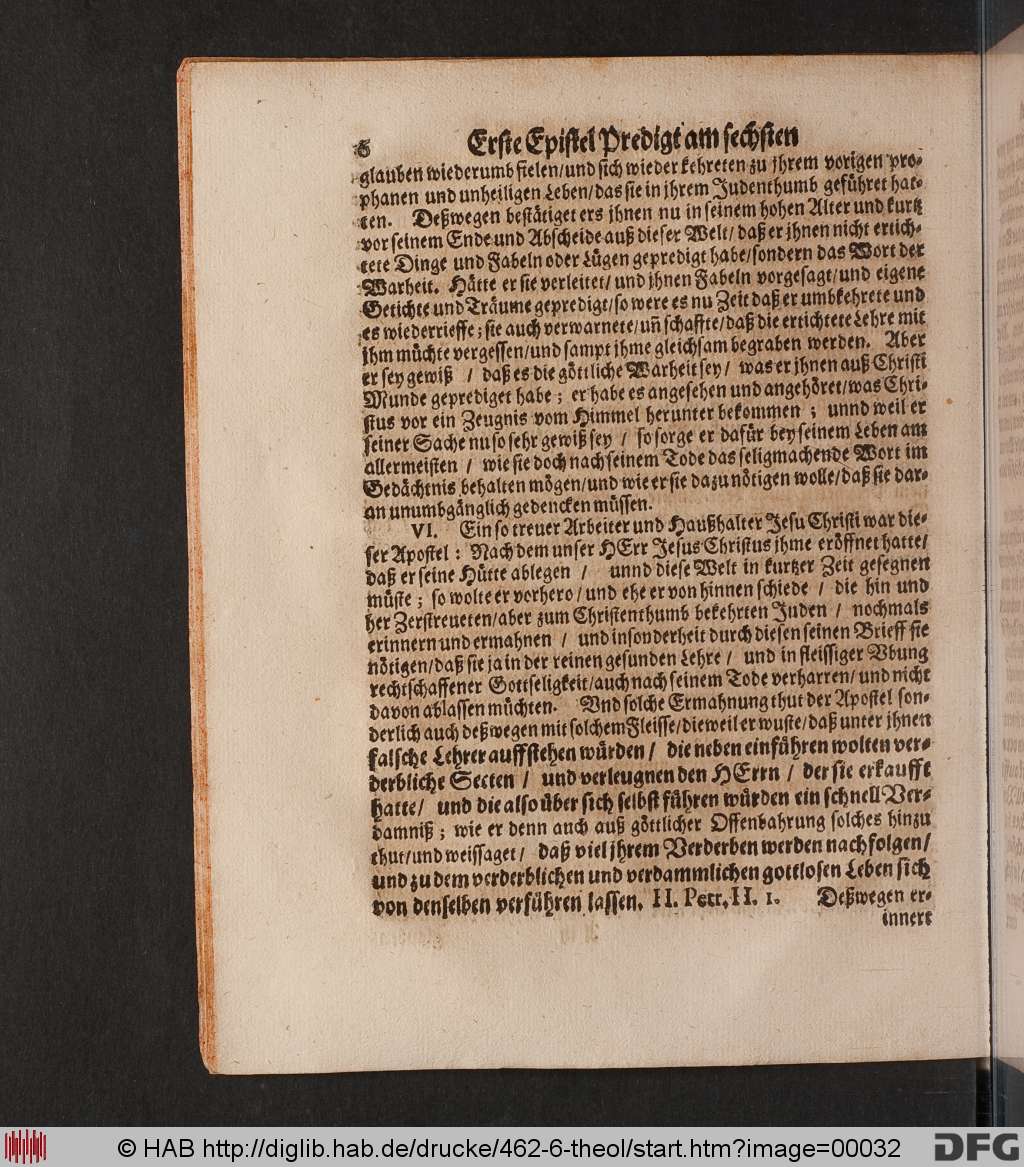 6 Erste Epistel Predigt am sechsten
glauben wiederumb fielen/und sich wieder kehreten zu jhrem vorigen pro-
phanen und unheiligen Leben/das sie in jhrem Judenthumb geführet hat-
ten. Deßwegen bestätiget ers jhnen nu in seinem hohen Alter und kurtz
vor seinem Ende und Abscheide auß dieser Welt/daß er jhnen nicht ertich-
tete Dinge und Fabeln oder Lügen gepredigt habe/sondern das Wort der
Warheit. Hätte er sie verleitet/und jhnen Fabeln vorgesagt/und eigene
Getichte und Träume gepredigt/so were es nu Zeit daß er umbkehrete und
es wiederrieffe; sie auch verwarnete/uñ schaffte/daß die ertichtete Lehre mit
jhm müchte vergessen/und sampt jhme gleichsam begraben werden. Aber
er sey gewiß / daß es die göttliche Warheit sey/ was er jhnen auß Christi
Munde geprediget habe; er habe es angesehen und angehöret/was Chri-
stus vor ein Zeugnis vom Himmel herunter bekommen; unnd weil er
seiner Sache nu so sehr gewiß sey / so sorge er dafür bey seinem Leben am
allermeisten / wie sie doch nach seinem Tode das seligmachende Wort im
Gedächtnis behalten mögen/und wie er sie dazu nötigen wolle/daß sie dar-
an unumbgänglich gedencken müssen.
VI. Ein so treuer Arbeiter und Haußhalter Jesu Christi war die-
ser Apostel: Nach dem unser HErr Jesus Christus jhme eröffnet hatte/
daß er seine Hütte ablegen / unnd diese Welt in kurtzer Zeit gesegnen
müste; so wolte er vorhero/und ehe er von hinnen schiede / die hin und
her Zerstreueten/aber zum Christenthumb bekehrten Juden / nochmals
erinnern und ermahnen / und insonderheit durch diesen seinen Brieff sie
nötigen/daß sie ja in der reinen gesunden Lehre / und in fleissiger Vbung
rechtschaffener Gottseligkeit/auch nach seinem Tode verharren/und nicht
davon ablassen müchten. Vnd solche Ermahnung thut der Apostel son-
derlich auch deßwegen mit solchem Fleisse/dieweil er wuste/daß unter jhnen
falsche Lehrer auffstehen würden/ die neben einführen wolten ver-
derbliche Secten / und verleugnen den HErrn / der sie erkaufft
hatte/ und die also über sich selbst führen würden ein schnell Ver-
damniß; wie er denn auch auß göttlicher Offenbahrung solches hinzu
thut/und weissaget/ daß viel jhrem Verderben werden nachfolgen/
und zu dem verderblichen und verdammlichen gottlosen Leben sich
von denselben verführen lassen. II. Petr. II. 1. Deßwegen er-
innert
© HAB http://diglib.hab.de/drucke/462-6-theol/start.htm?image=00032 DFG